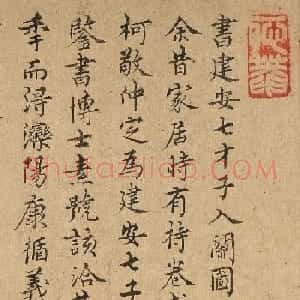 書建安七才子入關圖
余昔家居時有持卷
柯敬仲定為建安七子
鑒書博士
號該洽
季而得灤陽康循義
shufaziliao.com